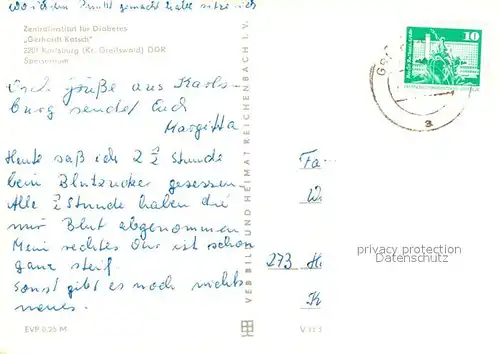 wo ich den Punkt gemacht habe sitze ich
Zentralinstitut für Diabetes
„Gerhardt Katsch"
2201 Karlsburg (Kr. Greifswald) DDR
Speisenraum
Grüße aus Karls-
burg sendet Euch
Margitta
Heute saß ich 2 ½ Stunde
beim Blutzucker gesessen.
Alle ½ Stunde haben die
mir Blut abgenommen
Mein rechtes Ohr ist schon
ganz steif.
Sonst gibt es noch nichts
neues.
EVP 0,25 M
VEB BILD UND HEIMAT REICHENBACH I. V.
V 11
10
a
Fa
W
273 H
K
privacy protection
Datenschutz